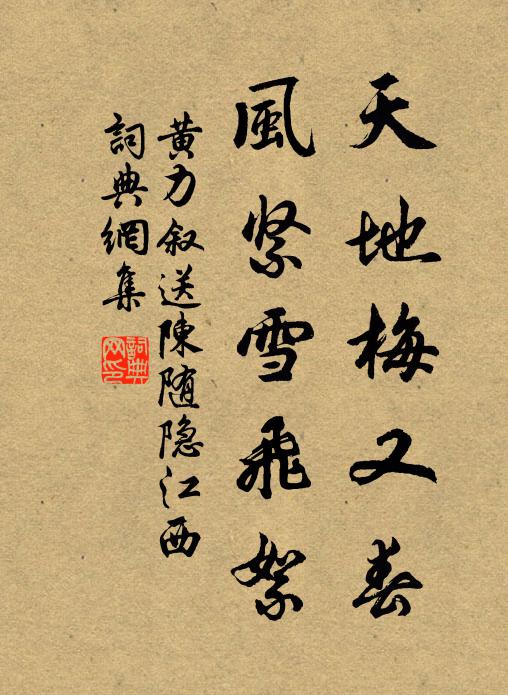 天地梅又春
風緊雪飛絮
黄力叙送陳随隐江西
詞典網集
詞典网印